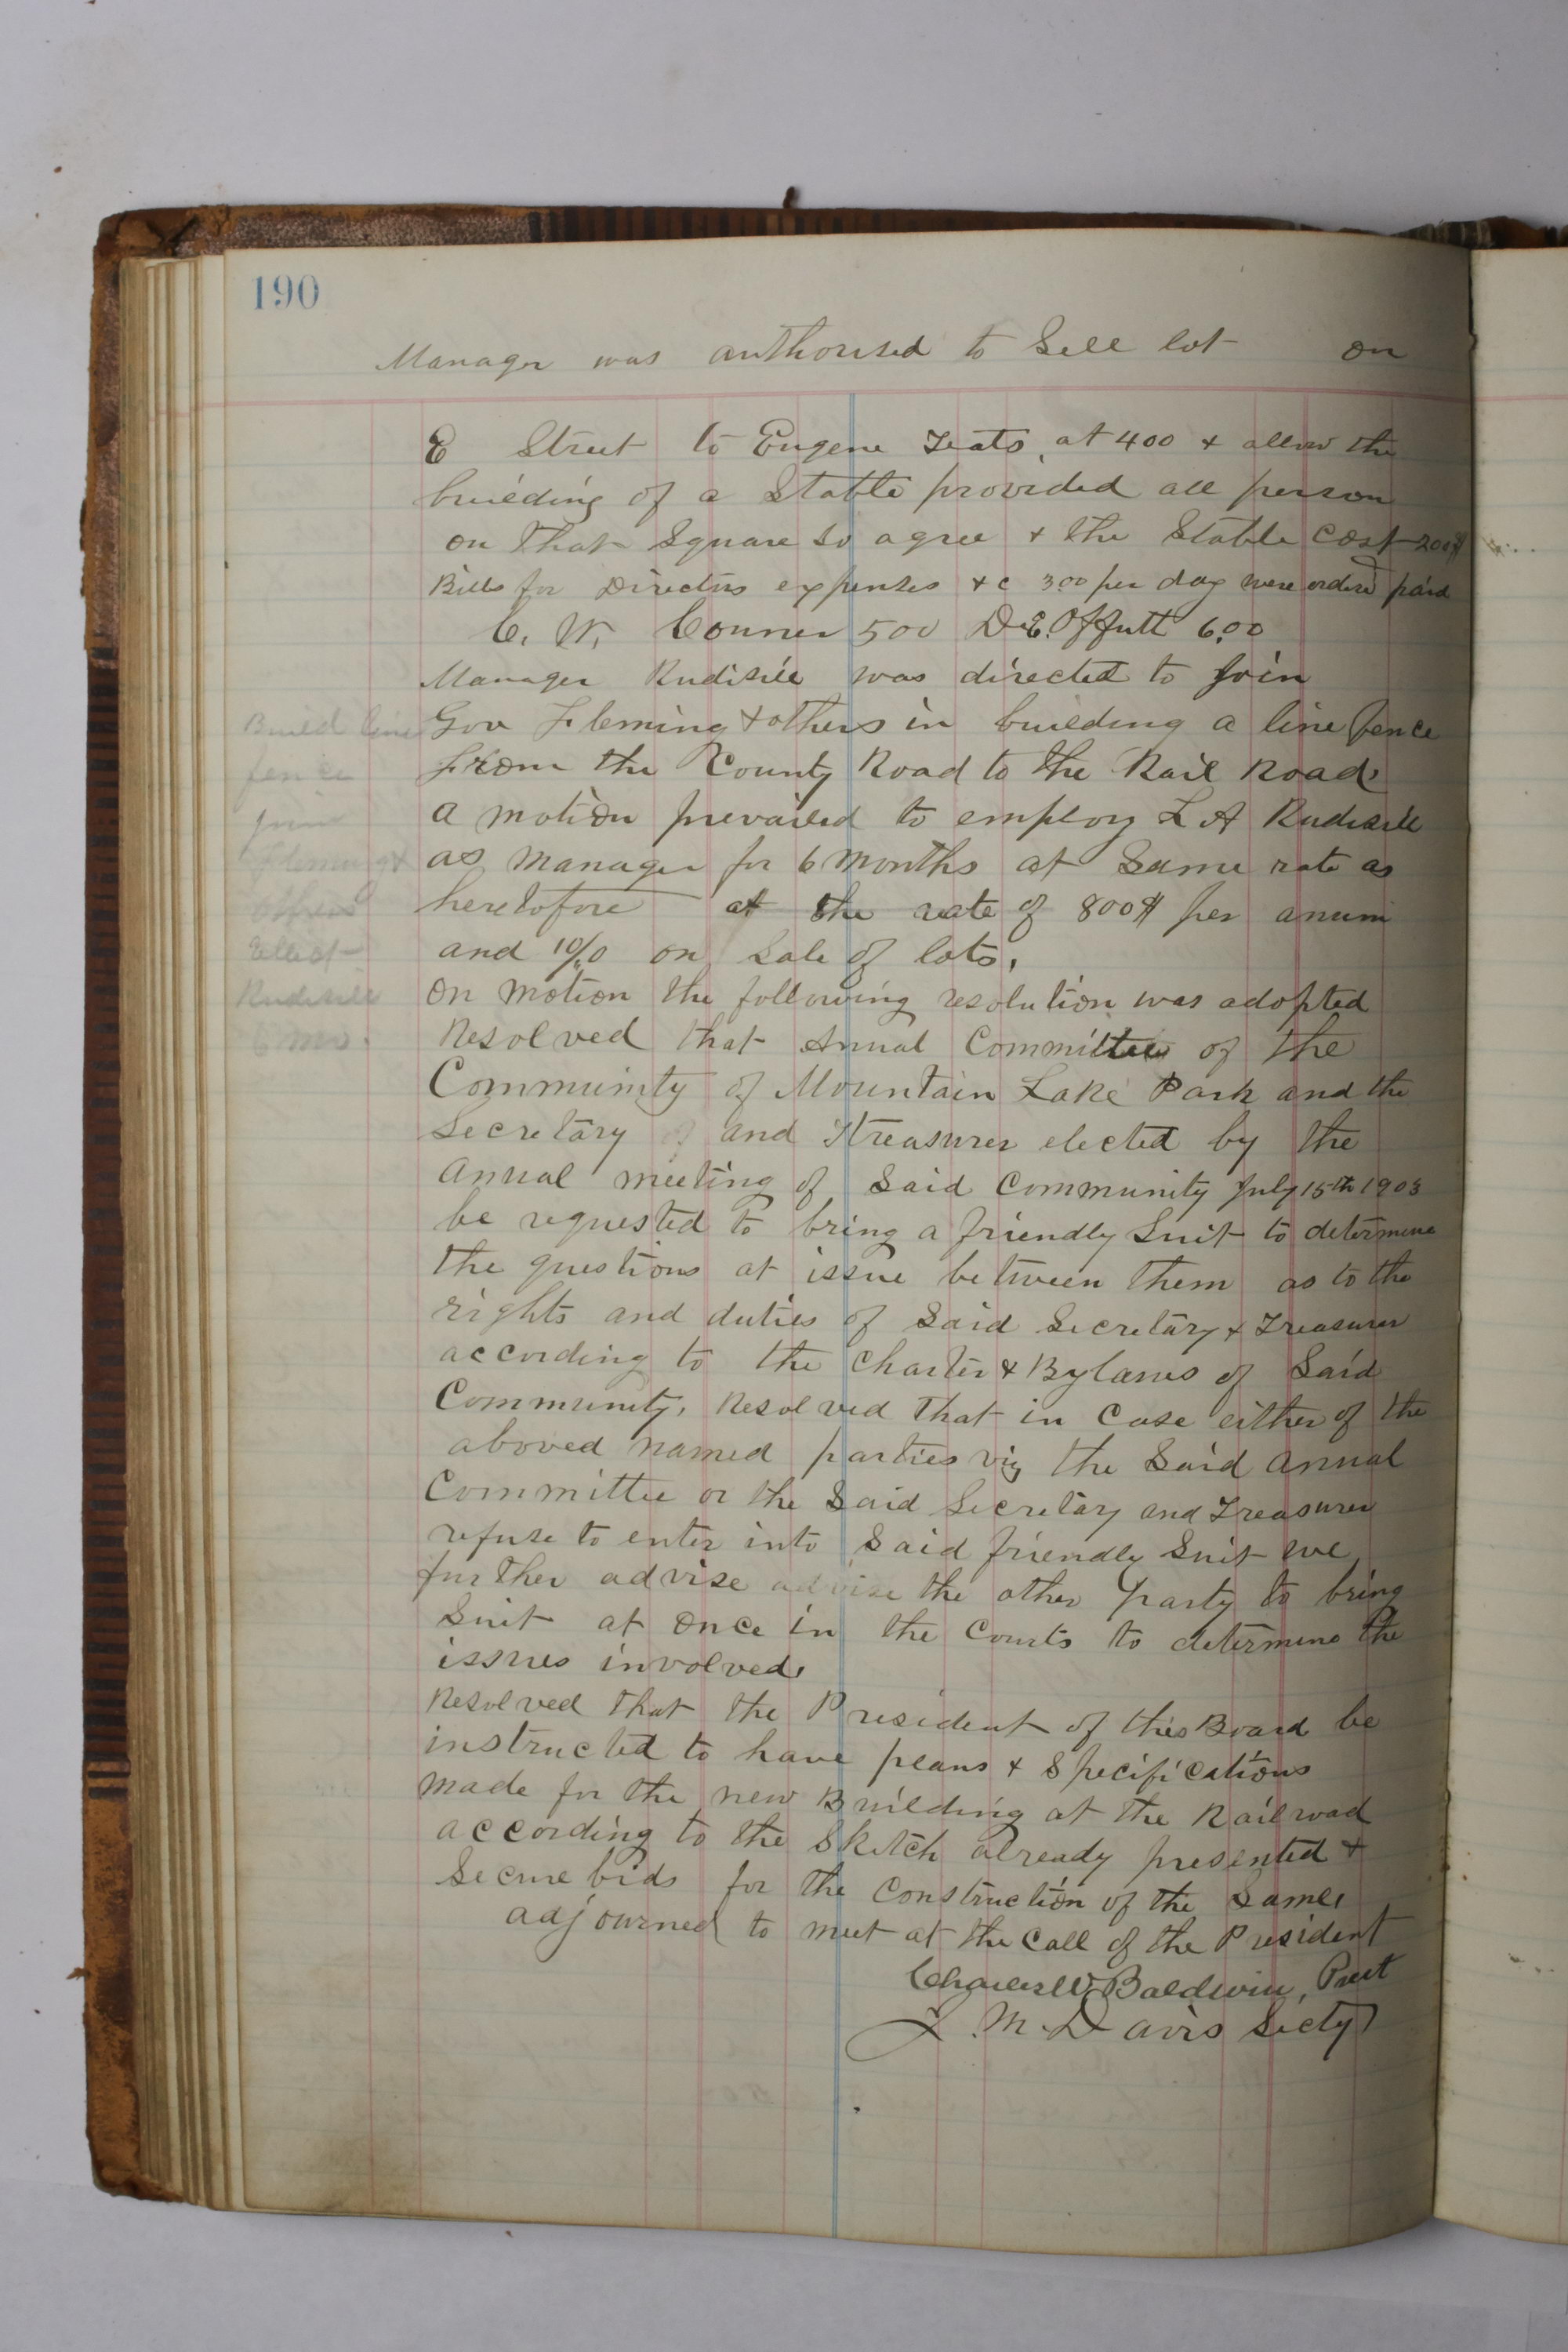 190
Manager was authorised to Sell lot on
E Street to Eugene Teats, at 400 & allow the
building of a Stable provided all person
on that Square so agree & the Stable cost 200$
Bills for Directors expenses &c 3.00 per day were orderd paid
C. W. Conner 500 D.E. Offutt 6.00
Manager Rudisill was directed to join
Gov Fleming & others in building a line fence
from the County Road to the Rail Road.
a motion prevailed to employ L A Rudisill
as manager for 6 months at Same rate as
heretofore at the rate of 800$ per anum
and 10% on Sale of lots.
On Motion the following resolution was adopted
Resolved that Anual Committee of the
Community of Mountain Lake Park and the
Secretary and Treasurer elected by the
Annual meeting of Said Community July 15th 1903
be requested to bring a friendly Suit to determine
the questions at issue between them as to the
rights and duties of Said Secretary & Treasurer
according to the Charter & Bylaws of Said
Community. Resolved that in Case either of the
aboved named parties viz the Said Annual
Committee or the Said Secretary and Treasurer
refuse to enter into Said friendly Suit we
further advise advise the other party to bring
Suit at once in the Courts to determine the
issues involved.
Resolved that the President of this Board be
instructed to have plans & Specifications
made for the new Building at the Railroad
according to the Sketch already presented &
Secure bids for the Construction of the Same.
adjourned to meet at the Call of the President
Charles W Baldwin, Prest
L. M. Davis Secty
Build line
fence
join
Fleming &
others
Elect
Rudisill
6 mo.